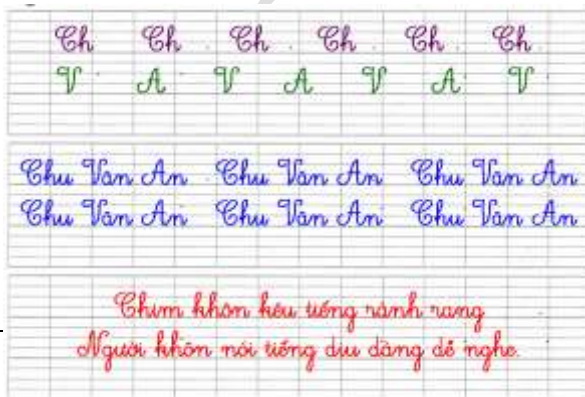 Ch Ch Ch Ch Ch Ch
V A V A V A V
Chu Văn An Chu Văn An Chu Văn An
Chu Văn An Chu Văn An Chu Văn An
Chim khôn kêu tiếng rảnh rang
Người khôn nói tiếng dịu dàng dễ nghe.